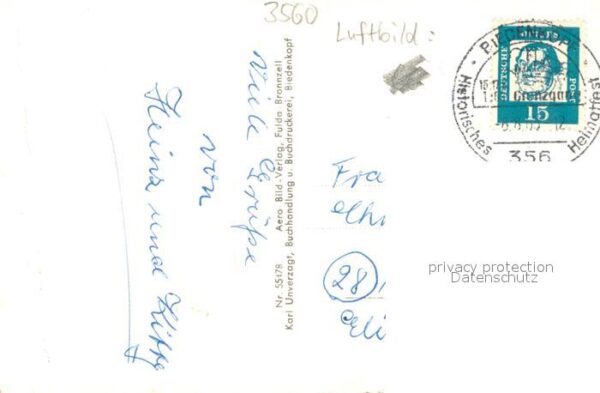 3560
Luftbild:
Viele Grüße
von
Heinz und Kitty
Nr. 55178 Aero Bild-Verlag, Fulda Bronnzell
Karl Unverzagt, Buchhandlung u. Buchdruckerei, Biedenkopf
Fra
28
privacy protection
Datenschutz
DEUTSCHE
POST
15
BIEDENKOPF
Grenzgang
Historisches Heimatfest
356